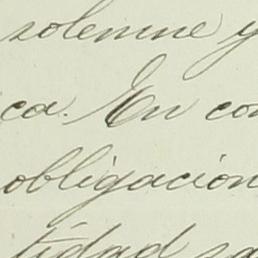 solemne y
ca. En con
obligación
tidad sa